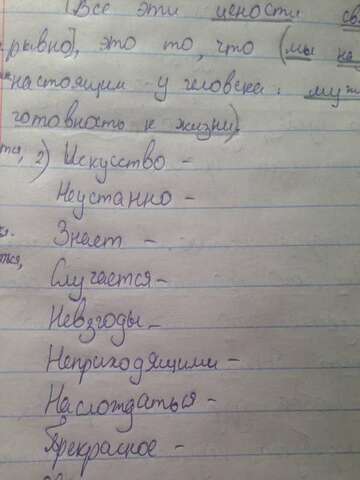 (Все эти ценности
рывно], это то, что (мы
настоящим у человека:
готовность к жизни).
2) Искусство -
Неустанно -
Знает -
Случается -
Невзгоды -
Неприходящими -
Наслождаться -
Прекрасное -